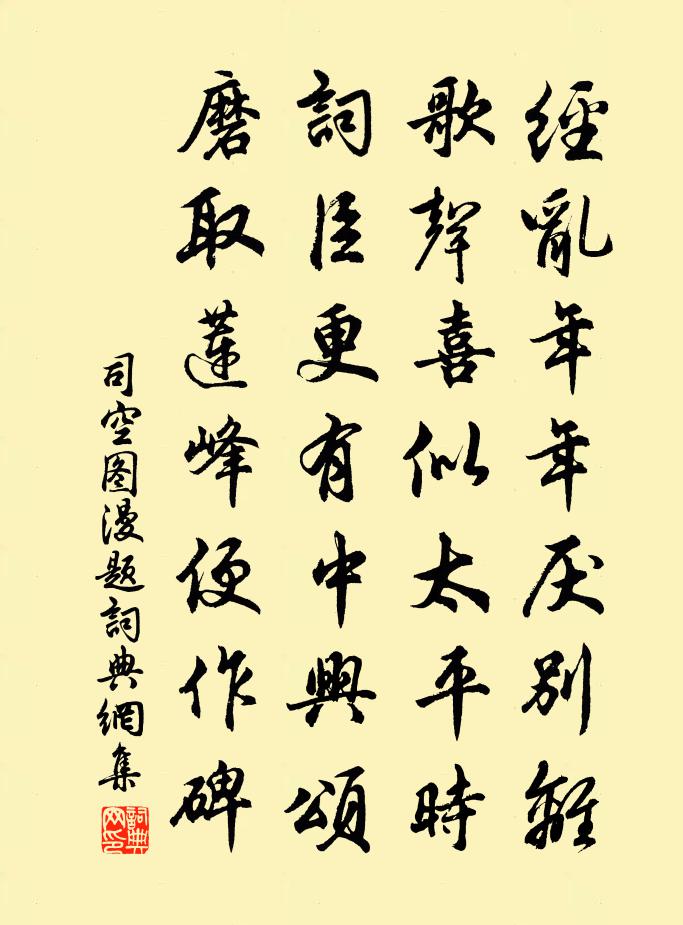 經亂年年厌別離
歌聲喜似太平時
詞臣更有中興頌
磨取蓮峰便作碑
司空图漫题詞典網集
詞典网印